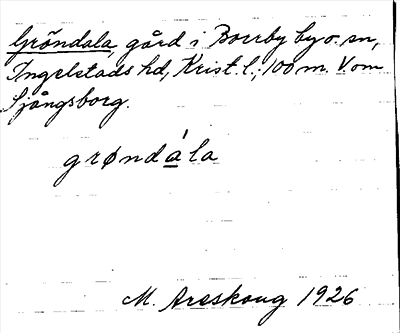 Gröndala, gård i Borrby by o. sn,
Ingelstads hd, Krist. l.; 100 m. V om
Sjångsborg.
grøndála
M. Areskoug 1926